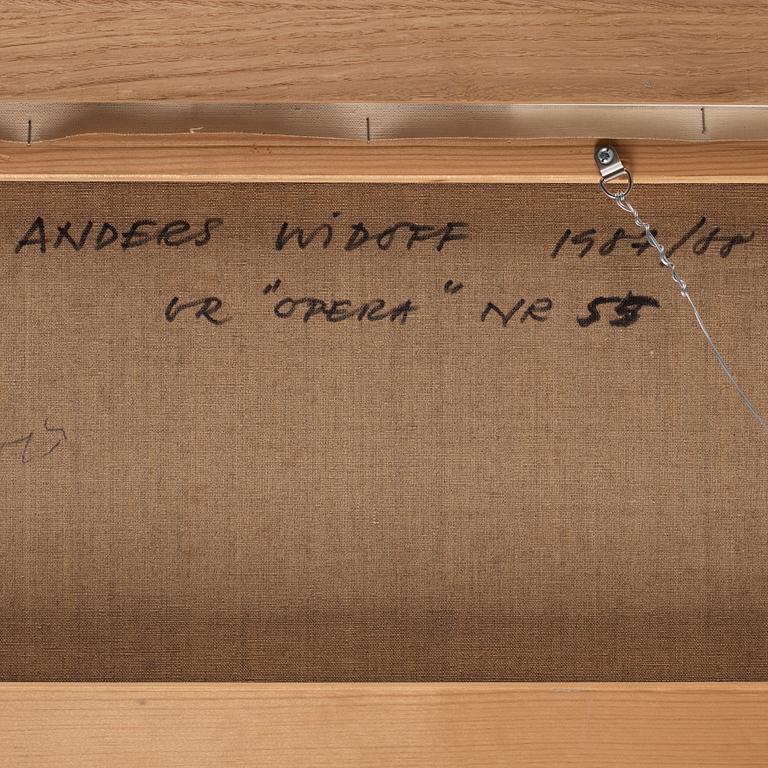 ANDERS WiDOFF 1987/88
UR "OPERA" NR 55